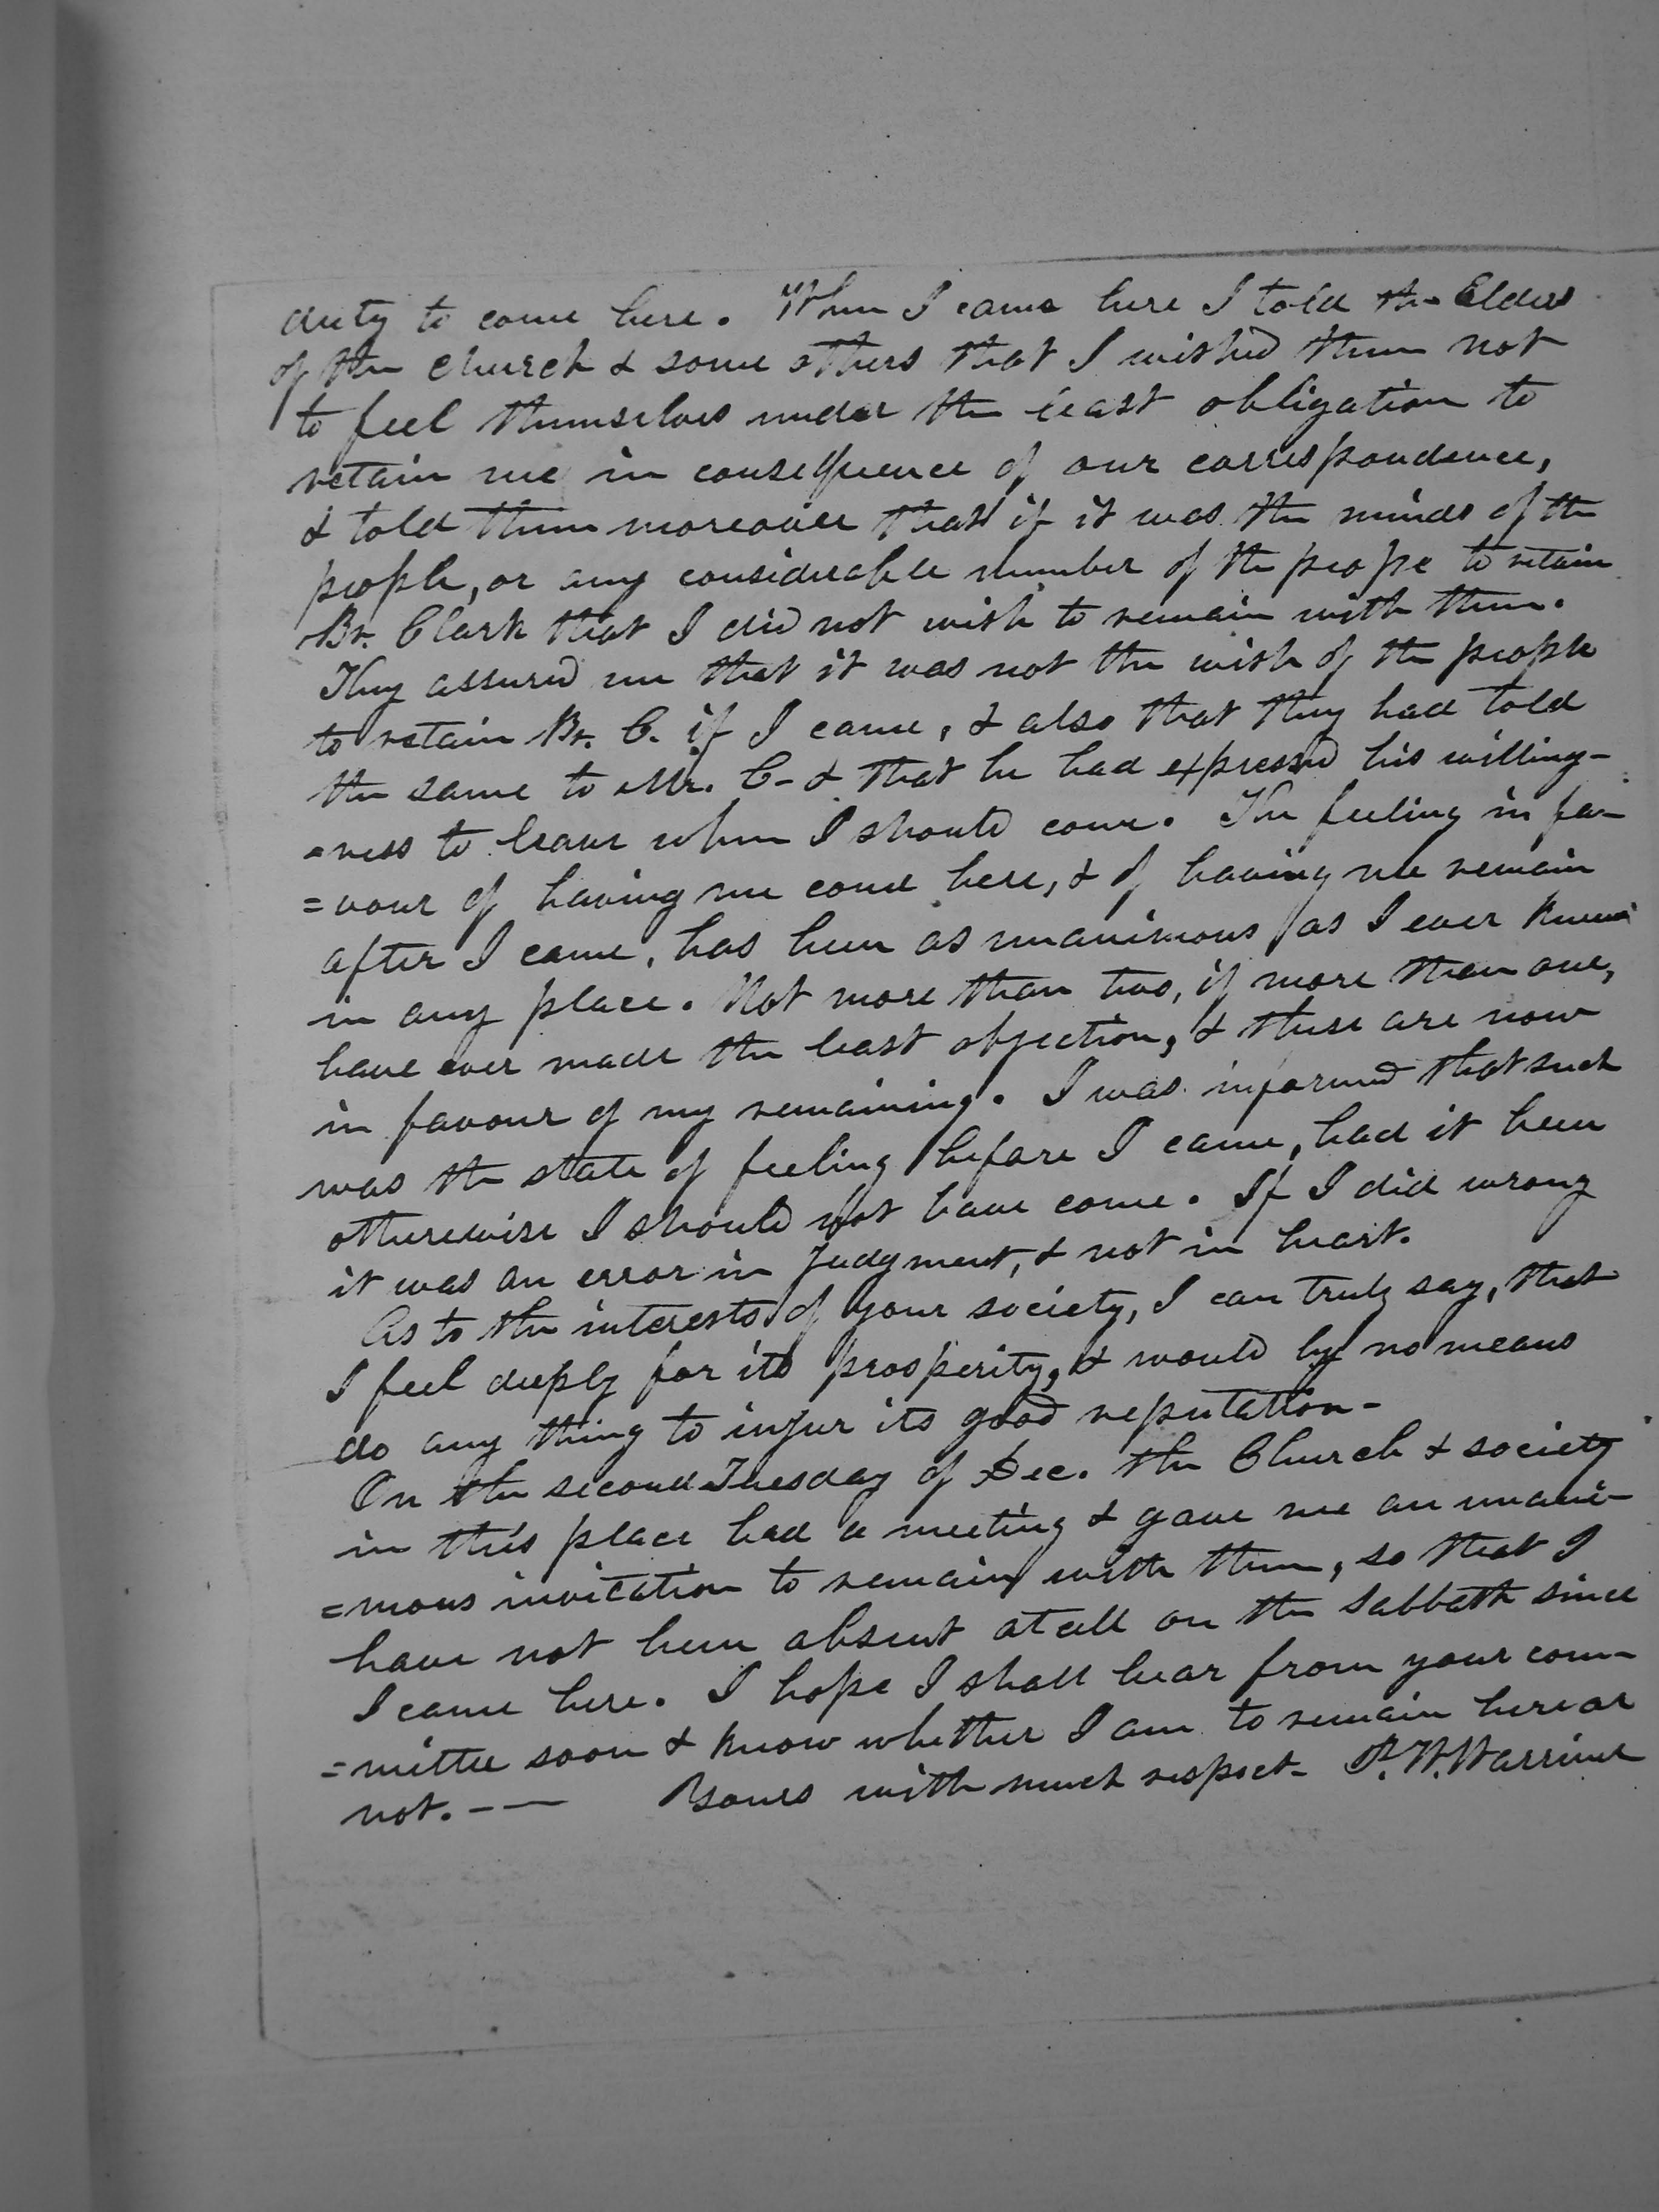 duty to come here. When I came here I told the Elders
of the church & some others that I wished them not
to feel themselves under the least obligation to
retain me in consequence of our correspondence,
& told them moreover that if it was the minds of the
people, or any considerable number of the peope to retain
Br. Clark that I did not wish to remain with them.
They assured me that it was not the wish of the people
to retain Br. C. if I came, & also that they had told
the same to Mr. C- & that he had expressed his willing-
=ness to leave when I should come. The feeling in fa-
=vour of having me come here, & of having me remain
after I came, has been as unanimous as I ever knew
in any place. Not more than two, if more than one,
have ever made the least objection, & these are now
in favour of my remaining. I was informed that such
was the state of feeling before I came, had it been
otherewise I should not have come. If I did wrong
it was an error in Judgment, & not in heart.
As to the interests of your society, I can truly say, that
I feel deeply for its prosperity, & would by no means
do any thing to injur its good reputation-
On the second Tuesday of Dec. the Church & society
in this place had a meeting & gave me an unani-
=mous invitation to remain with them, so that I
have not been absent at all on the Sabbath since
I came here. I hope I shall hear from your com-
=mittee soon & know whether I am to remain here or
not. -- Yours with much respect- P. W. Warriner